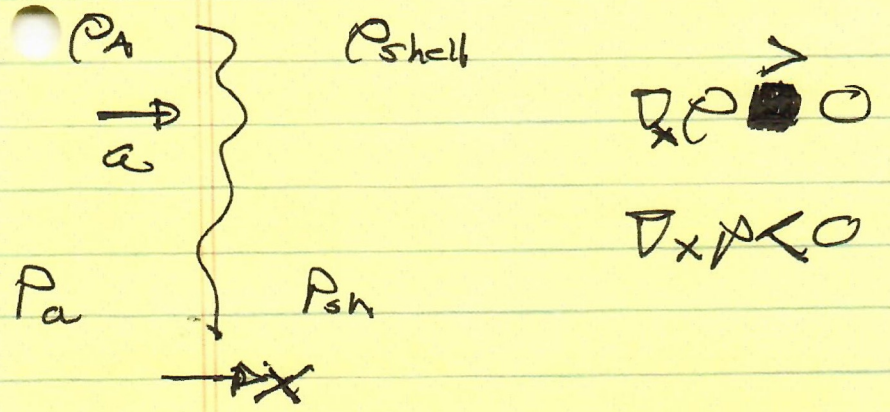 ρA ρshell
>
∇xρ ■ 0
a
∇xp<0
Pa Psh
x